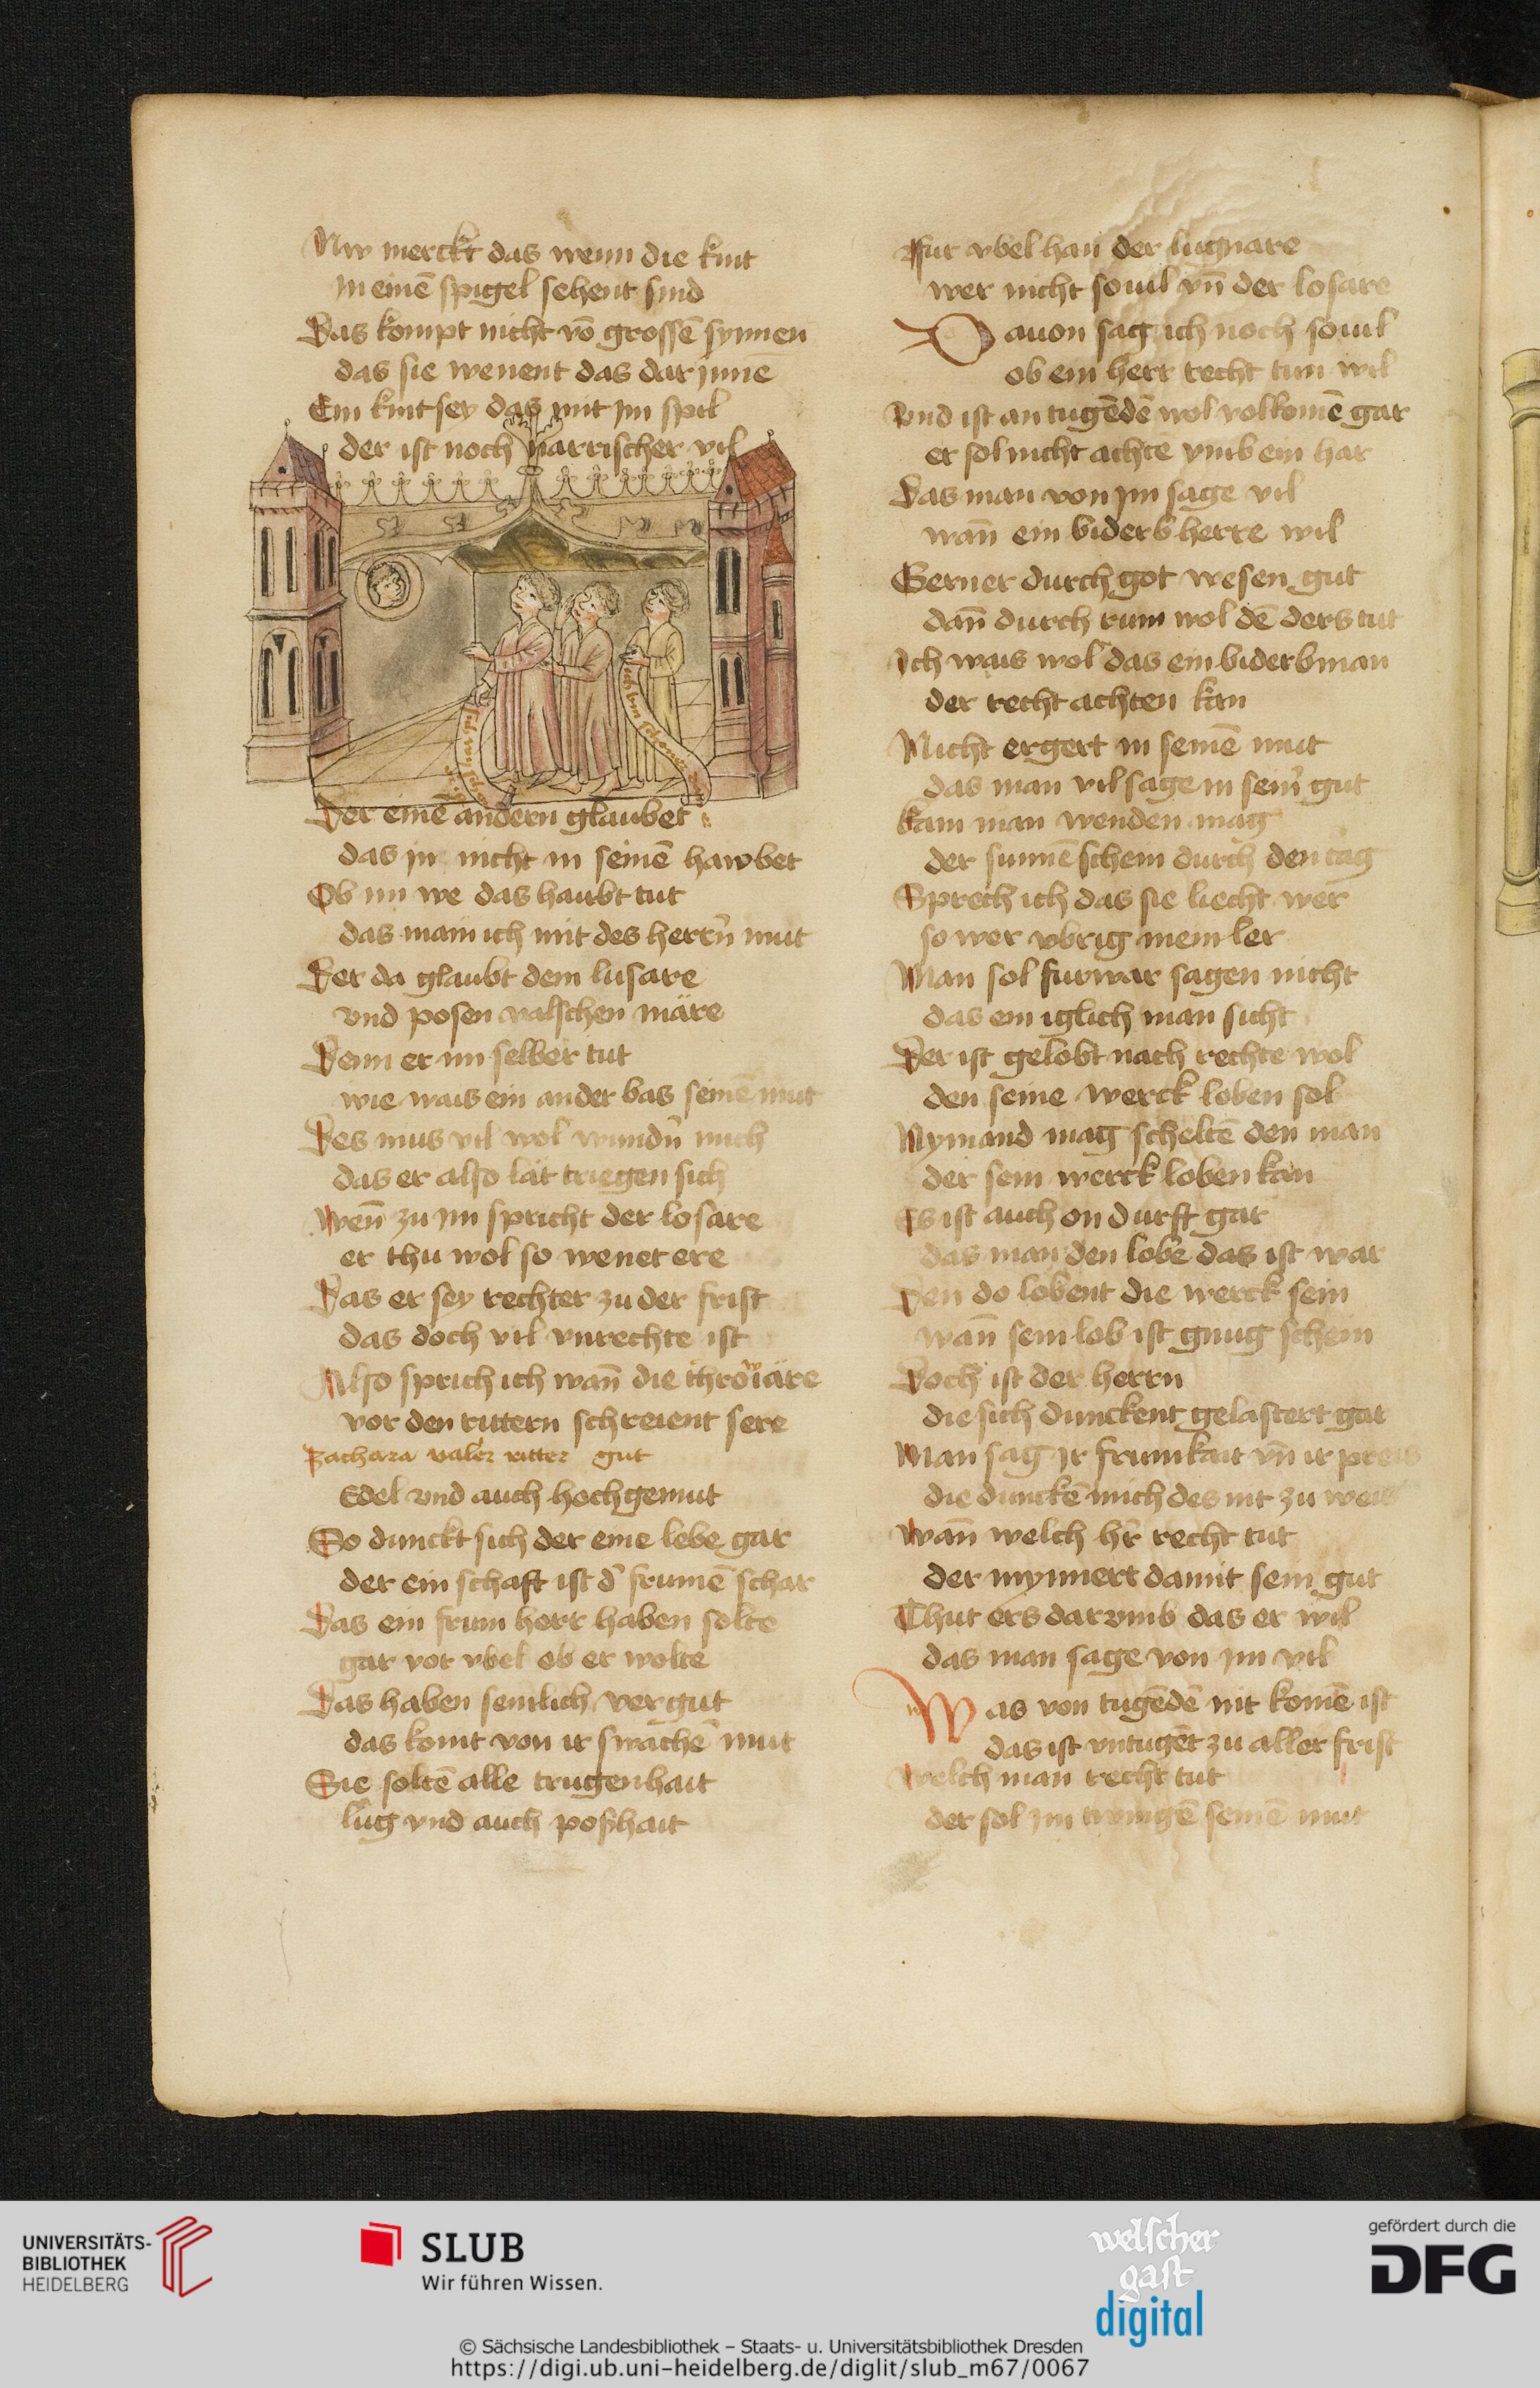 Nw merckt das wenn die kint
In einē spigel sehent sind
Das kompt nicht vō grossē synnen
das sie wenent das dar jnnē
Ein kint sey das mit jm spil
der ist noch narrischer vil
ich bin schoner dan
Der einē andern glaubet
das jn nicht in seinē hawbet
Ob im we das haubt tut
das main ich mit des herrn̄ mut
Der da glaubt dem lusare
vnd posen valschen märe
Denn er im selber tut
wie wais ein ander bas seinē mut
Des mus vil wol wundn̄ mich
das er also lät triegen sich
Wen̄ zu im spricht der losare
er thu wol so wenet ere
Das er sey rechter zu der frist
das doch vil vnrechte ist
Also sprich ich wan̄ die
vor den rittern schreient sere
Zachara valer ritter gut
Edel vnd auch hochgemut
So dunckt sich der eine lebe gar
der ein schaft ist d̄ frumē schar
Das ein frum herr haben solte
gar vor vbel ob er wolte
Das haben semlich ver gut
das komt von ir swachē mut
Sie soltē alle trugenhait
lug vnd auch poshait
Fur vbel han der lugnare
wer nicht souil vn̄ der losare
Dauon sag ich noch souil
ob ein herr recht tun wil
Vnd ist an tugēdē wol volkomē gar
er sol nicht achte vmb ein har
Das man von jm sage vil
wan̄ ein biderb herre wil
Gerner durch got wesen gut
dan̄ durch rum wol dē ders tut
Ich wais wol das ein biderbman
der recht achten kan
Nicht ergert in seinē mut
das man vil sage in sein̄ gut
kam man wenden mag
der sunnē schein durch den tag
Sprech ich das sie liecht wer
so wer vbrig mein ler
Man sol furwar sagen nicht
das ein iglich man sicht
Der ist gelobt nach rechte wol
den seine werck loben sol
Nymand mag scheltē den man
der sein werck loben kan
Es ist auch on durft gar
das man den lobe das ist war
Den do lobent die werck sein
wan̄ sein lob ist gnug schein
Doch ist der herrn
die sich dunckent gelastert gar
Man sag Ir frumkait vn̄ ir preis
die dunckē mich des nit zu weis
Wan̄ welch hr̄ recht tut
der mynnert damit sein gut
Thut ers darvmb das er wil
das man sage von jm vil
Was von tugēdē nit komē ist
das ist vntugēt zu aller frist
Welch man recht tut
der sol jm twingē seinē mut
UNIVERSITÄTS-
BIBLIOTHEK
HEIDELBERG
SLUB
Wir führen Wissen.
welscher
gast
digital
gefördert durch die
DFG
© Sächsische Landesbibliothek – Staats- u. Universitätsbibliothek Dresden
https://digi.ub.uni-heidelberg.de/diglit/slub_m67/0067